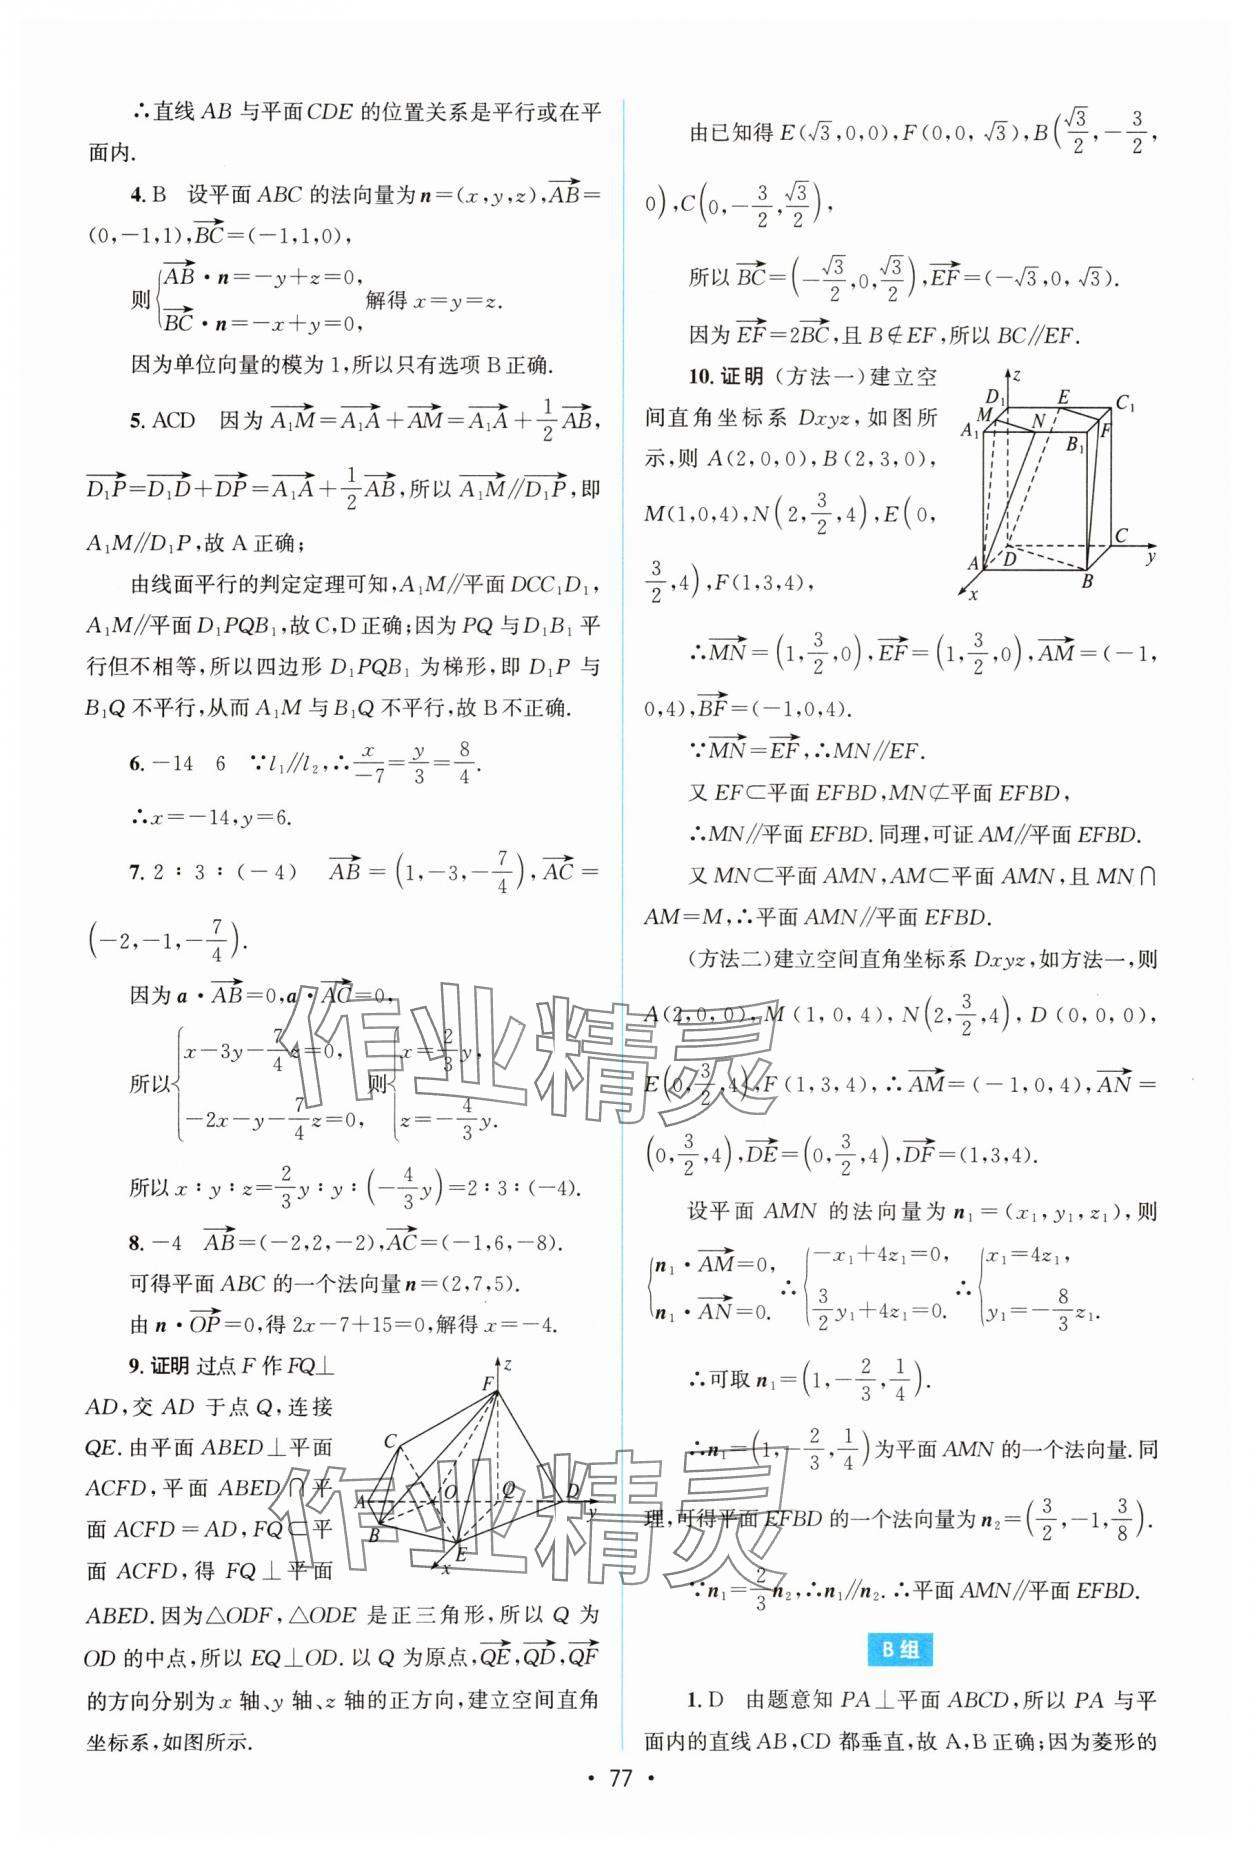 ∴直线 AB 与平面 CDE 的位置关系是平行或在平
面内.
4. B　设平面 ABC 的法向量为 n=(x,y,z),$\overrightarrow{AB}$=
(0,-1,1),$\overrightarrow{BC}$=(-1,1,0),
则{$\overrightarrow{AB}$·n=-y+z=0,
$\overrightarrow{BC}$·n=-x+y=0, 解得 x=y=z.
因为单位向量的模为 1,所以只有选项 B 正确.
5. ACD　因为 $\overrightarrow{A_1M}=\overrightarrow{A_1A}+\overrightarrow{AM}=\overrightarrow{A_1A}+\frac{1}{2}\overrightarrow{AB}$,
$\overrightarrow{D_1P}=\overrightarrow{D_1D}+\overrightarrow{DP}=\overrightarrow{A_1A}+\frac{1}{2}\overrightarrow{AB}$,所以 $\overrightarrow{A_1M}$∥$\overrightarrow{D_1P}$,即
A₁M∥D₁P,故 A 正确;
由线面平行的判定定理可知,A₁M∥平面 DCC₁D₁,
A₁M∥平面 D₁PQB₁,故 C,D 正确;因为 PQ 与 D₁B₁ 平
行但不相等,所以四边形 D₁PQB₁ 为梯形,即 D₁P 与
B₁Q 不平行,从而 A₁M 与 B₁Q 不平行,故 B 不正确.
6. -14　6　∵l₁∥l₂,∴$\frac{x}{-7}=\frac{y}{3}=\frac{8}{4}$.
∴x=-14,y=6.
7. 2∶3∶(-4)　$\overrightarrow{AB}=\left(1,-3,-\frac{7}{4}\right)$,$\overrightarrow{AC}$=
$\left(-2,-1,-\frac{7}{4}\right)$.
因为 a·$\overrightarrow{AB}$=0,a·$\overrightarrow{AC}$=0,
所以{$x-3y-\frac{7}{4}z=0$,
$-2x-y-\frac{7}{4}z=0$, 则{$x=\frac{2}{3}y$,
$z=-\frac{4}{3}y$.
所以 x∶y∶z=$\frac{2}{3}$y∶y∶$\left(-\frac{4}{3}y\right)$=2∶3∶(-4).
8. -4　$\overrightarrow{AB}$=(-2,2,-2),$\overrightarrow{AC}$=(-1,6,-8).
可得平面 ABC 的一个法向量 n=(2,7,5).
由 n·$\overrightarrow{OP}$=0,得 2x-7+15=0,解得 x=-4.
9. 证明 过点 F 作 FQ⊥
AD,交 AD 于点 Q,连接
QE.由平面 ABED⊥平面
ACFD,平面 ABED∩平
面 ACFD=AD,FQ⊂平
面 ACFD,得 FQ⊥平面
z
F
C
A
O
Q
D
y
B
E
x
ABED.因为△ODF,△ODE 是正三角形,所以 Q 为
OD 的中点,所以 EQ⊥OD.以 Q 为原点,$\overrightarrow{QE}$,$\overrightarrow{QD}$,$\overrightarrow{QF}$
的方向分别为 x 轴、y 轴、z 轴的正方向,建立空间直角
坐标系,如图所示.
由已知得 E($\sqrt{3}$,0,0),F(0,0,$\sqrt{3}$),B($\frac{\sqrt{3}}{2}$,-$\frac{3}{2}$,
0),C$\left(0,-\frac{3}{2},\frac{\sqrt{3}}{2}\right)$,
所以 $\overrightarrow{BC}=\left(-\frac{\sqrt{3}}{2},0,\frac{\sqrt{3}}{2}\right)$,$\overrightarrow{EF}$=(-$\sqrt{3}$,0,$\sqrt{3}$).
因为 $\overrightarrow{EF}$=2$\overrightarrow{BC}$,且 B∉EF,所以 BC∥EF.
10. 证明 (方法一)建立空
间直角坐标系 Dxyz,如图所
示,则 A(2,0,0),B(2,3,0),
M(1,0,4),N$\left(2,\frac{3}{2},4\right)$,E(0,
$\frac{3}{2}$,4),F(1,3,4),
z
D₁
E
C₁
M
N
F
A₁
B₁
C
A
D
y
B
x
∴$\overrightarrow{MN}=\left(1,\frac{3}{2},0\right)$,$\overrightarrow{EF}=\left(1,\frac{3}{2},0\right)$,$\overrightarrow{AM}$=(-1,
0,4),$\overrightarrow{BF}$=(-1,0,4).
∵$\overrightarrow{MN}$=$\overrightarrow{EF}$,∴MN∥EF.
又 EF⊂平面 EFBD,MN⊄平面 EFBD,
∴MN∥平面 EFBD.同理,可证 AM∥平面 EFBD.
又 MN⊂平面 AMN,AM⊂平面 AMN,且 MN∩
AM=M,∴平面 AMN∥平面 EFBD.
(方法二)建立空间直角坐标系 Dxyz,如方法一,则
A(2,0,0),M(1,0,4),N$\left(2,\frac{3}{2},4\right)$,D(0,0,0),
E$\left(0,\frac{3}{2},4\right)$,F(1,3,4),∴$\overrightarrow{AM}$=(-1,0,4),$\overrightarrow{AN}$=
$\left(0,\frac{3}{2},4\right)$,$\overrightarrow{DE}=\left(0,\frac{3}{2},4\right)$,$\overrightarrow{DF}$=(1,3,4).
设平面 AMN 的法向量为 n₁=(x₁,y₁,z₁),则
{n₁·$\overrightarrow{AM}$=0,
n₁·$\overrightarrow{AN}$=0. ∴{-x₁+4z₁=0,
$\frac{3}{2}$y₁+4z₁=0. ∴{x₁=4z₁,
y₁=-$\frac{8}{3}$z₁.
∴可取 n₁=$\left(1,-\frac{2}{3},\frac{1}{4}\right)$.
∴n₁=$\left(1,-\frac{2}{3},\frac{1}{4}\right)$为平面 AMN 的一个法向量.同
理,可得平面 EFBD 的一个法向量为 n₂=$\left(\frac{3}{2},-1,\frac{3}{8}\right)$.
∵n₁=$\frac{2}{3}$n₂,∴n₁∥n₂.∴平面 AMN∥平面 EFBD.
B 组
1. D　由题意知 PA⊥平面 ABCD,所以 PA 与平
面内的直线 AB,CD 都垂直,故 A,B 正确;因为菱形的
作业精灵
作业精灵
· 77 ·